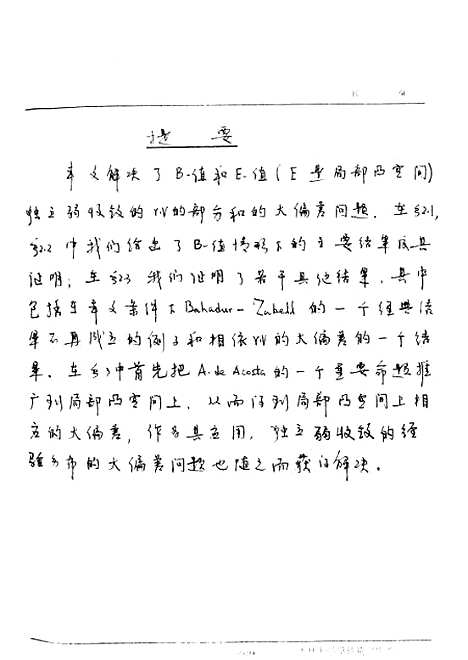 提 要
本文解决了B-值和E-值(E是局部凸空间)
独立弱收敛的r.v.的部分和的大偏差问题. 在§2.1,
§2.2 中我们给出了B-值情形下的主要结果及其
证明; 在§2.3 我们证明了若干其他结果, 其中
包括在本文条件下Bahadur-Zabell 的一个经典结
果不再成立的例子和相依r.v.的大偏差的一个结
果. 在§3中首先把A. de Acosta的一个重要命题推
广到局部凸空间上, 从而得到局部凸空间上相
应的大偏差, 作为其应用, 独立弱收敛的经
验分布的大偏差问题也随之而获得解决.